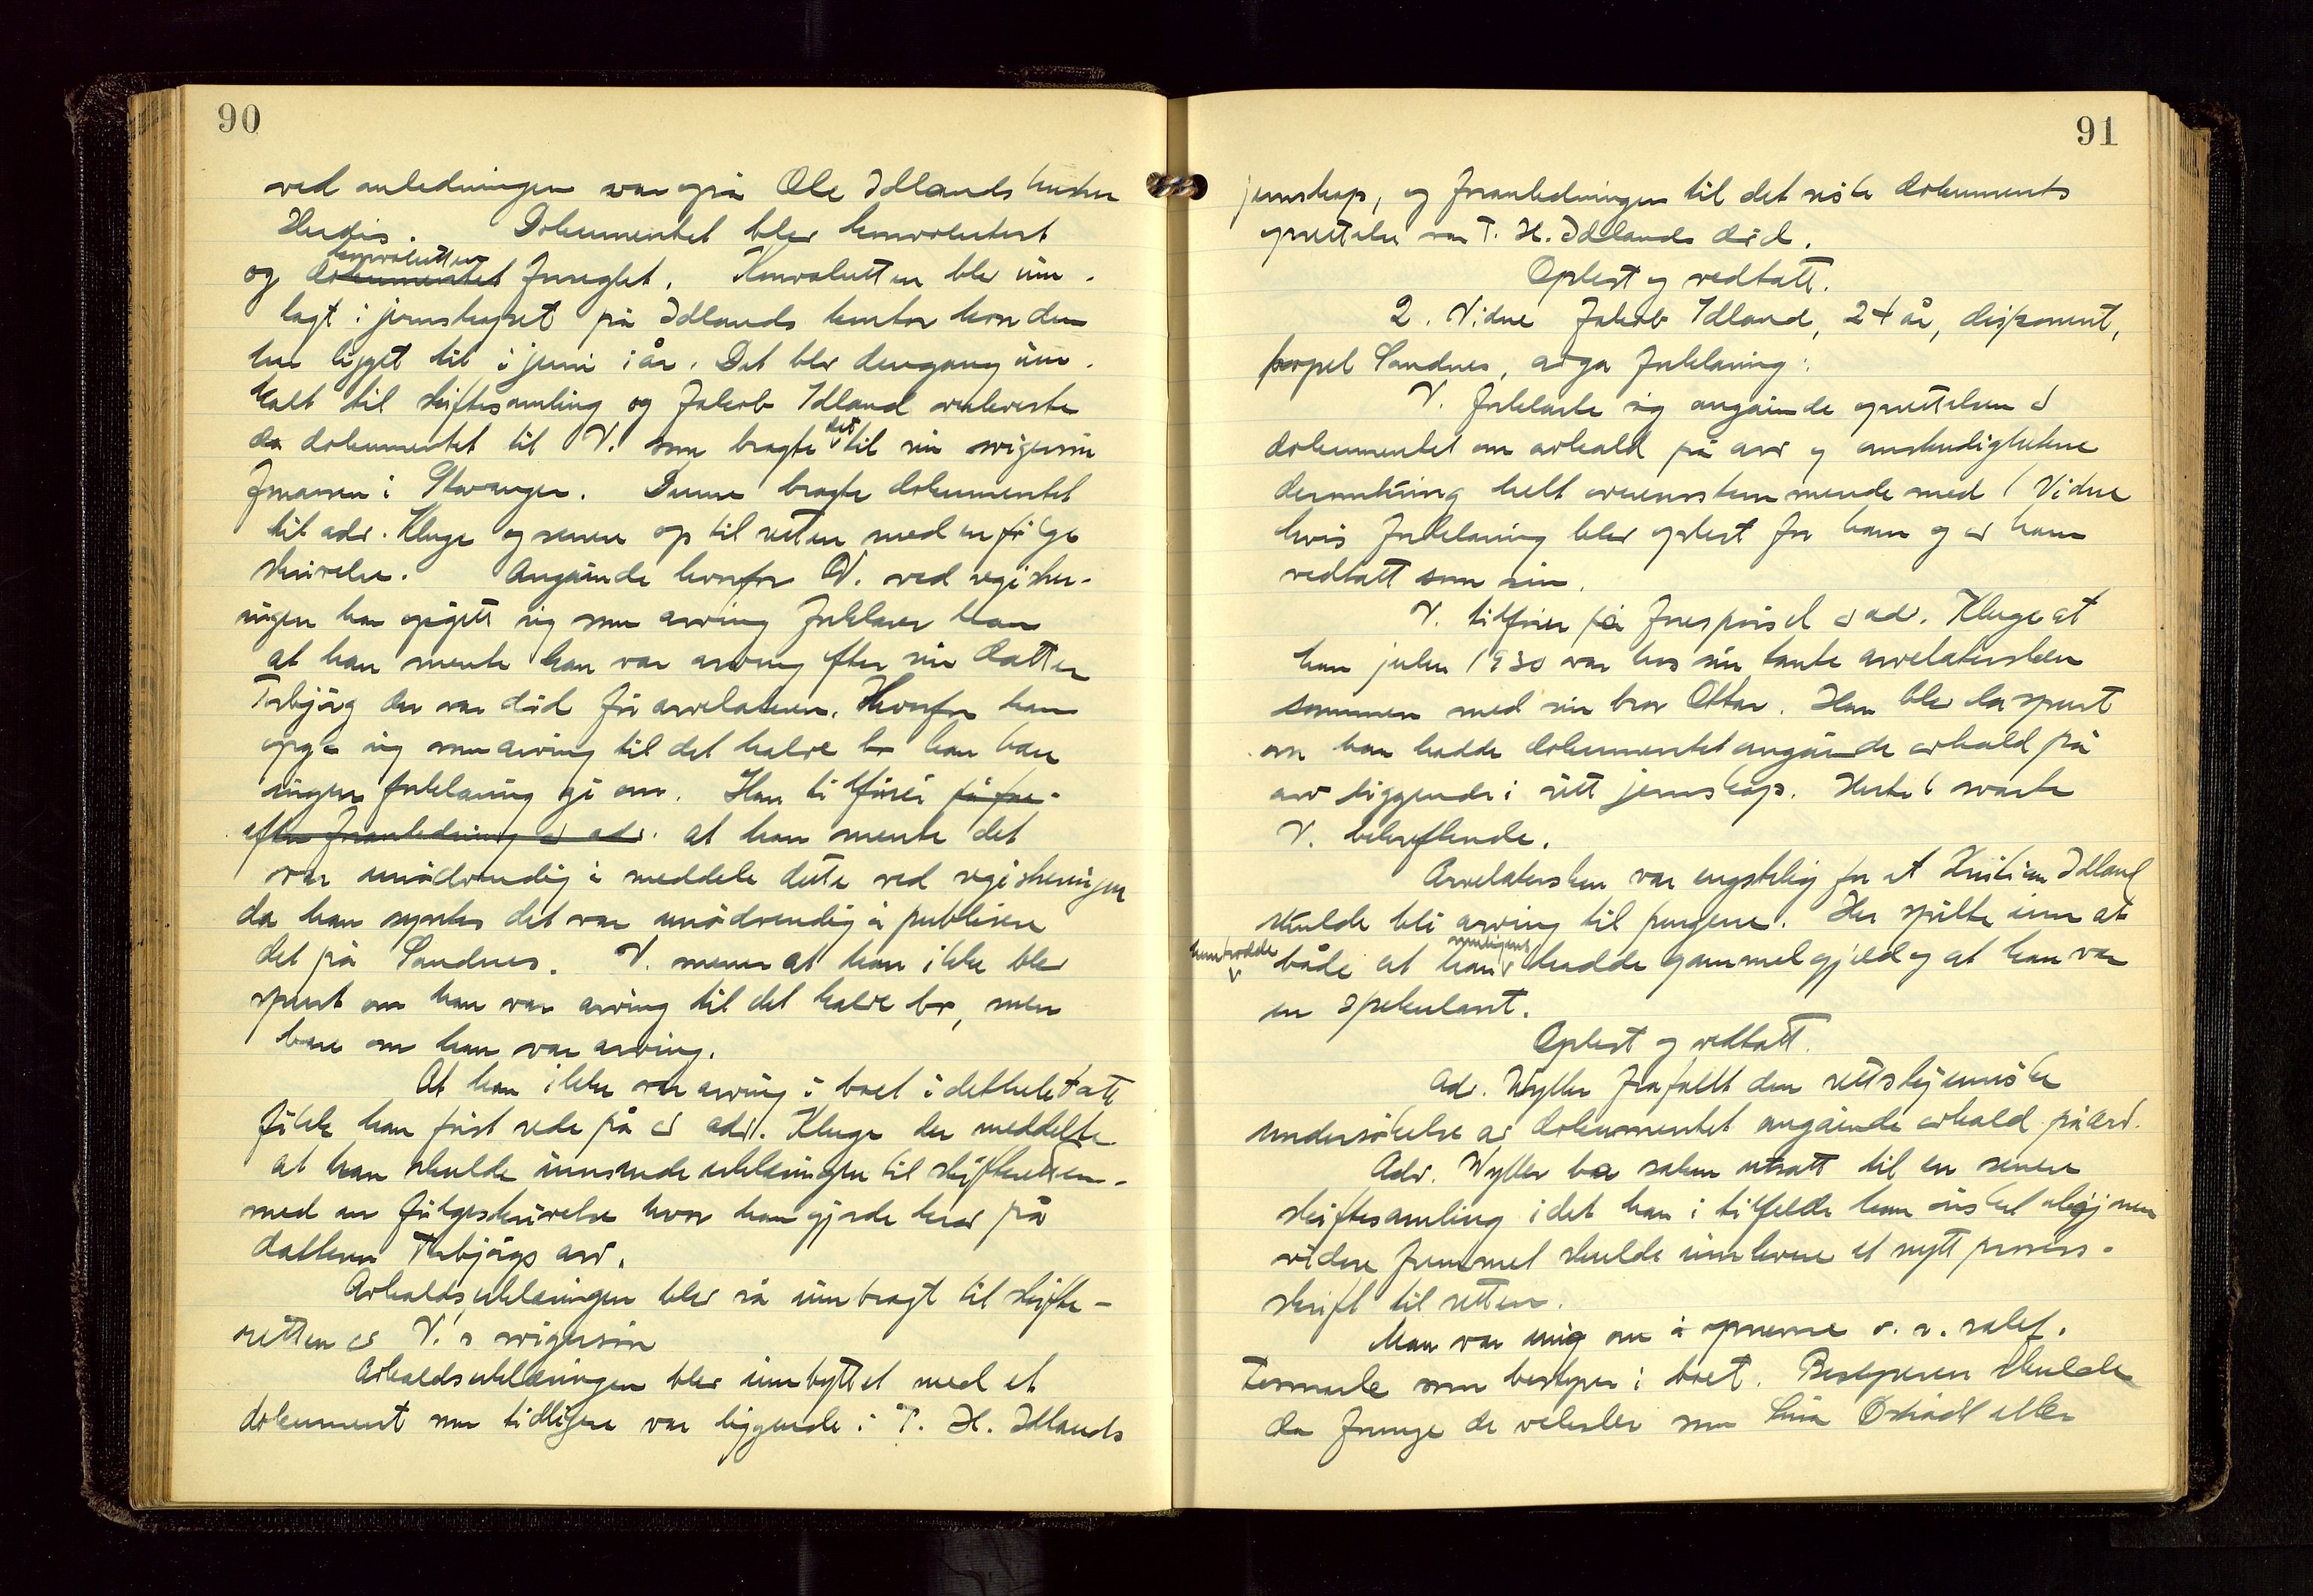 90
ved anledningen var også Ole Idlands hustru
Herdis. Dokumentet blev konvoluttert
og dokumentet konvolutten forseglet. Konvolutten ble inn-
lagt i jernskapet på Idlands kontor hvor den
har ligget til i juni i år. Det blev dengang inn-
kalt til skiftesamling og Jakob Idland overleverte
da dokumentet til V. som bragte det til sin svigersøn
i Stavanger. Denne bragte dokumentet
til adv. Kluge og senere op til retten med en følge
skrivelse. Angående hvorfor V. ved registrer-
ingen har opgitt sig som arving forklarer han
at han mente han var arving efter sin datter
Torbjørg der var død før arvelateren. Hvorfor han
opga sig som arving til det halve bo kan han
ingen forklaring gi om. Han tilføier på fore-
efter foranledning av adv. at han mente det
var unødvendig å meddele dette ved registreringen
da han syntes det var unødvendig å publisere
det på Sandnes. V. mener at han ikke blev
spurt om han var arving til det halve bo, men
bare om han var arving.
At han ikke var arving i boet i det hele tatt
fikk han først rede på av adv. Kluge der meddelte
at han skulde innsende erklæringen til skifteretten
med en følgeskrivelse hvor han gjorde krav på
datteren Torbjørgs arv.
Avkaldserklæringen blev så innbragt til skifte-
retten av V.'s svigersøn
Avkaldserklæringen blev innbyttet med et
dokument som tidligere var liggende i T. H. Idlands
91
jernskap, og foranledningen til det siste dokuments
oprettelse var T. H. Idlands død.
Oplest og vedtatt.
2. Vidne Jakob Idland, 24 år, disponent,
bopel Sandnes, avga forklaring:
V. forklarte sig angående oprettelsen av
dokumentet om avkald på arv og omstendighetene
deromkring helt overensstemmende med 1 Vidne
hvis forklaring blev oplest for ham og av ham
vedtatt som sin.
V. tilføier på forespørsel av adv. Kluge at
han julen 1930 var hos sin tante arvelatersken
sammen med sin bror Ottar. Han blev da spurt
om han hadde dokumentet angående avkald på
arv liggende i sitt jernskap. Hertil svarte
V. bekreftende.
Arvelatersken var engstelig for at Kristian Idland
skulde bli arving til pengene. Her spilte inn at
hun trodde både at han muligens hadde gammel gjeld og at han var
en spekulant.
Oplest og vedtatt.
Adv. Wyller frafallt den rettskjemiske
undersøkelse av dokumentet angående avkald på arv.
Adv. Wyller ba saken utsatt til en senere
skiftesamling idet han i tilfelde han ønsket
videre fremmet skulde innlevere et nytt prosess-
skrift til retten.
Man var enig om å opnevne o. r. sakf.
som bestyrer i boet. Bestyreren skulde
da fungere de vekesler som Lina eller